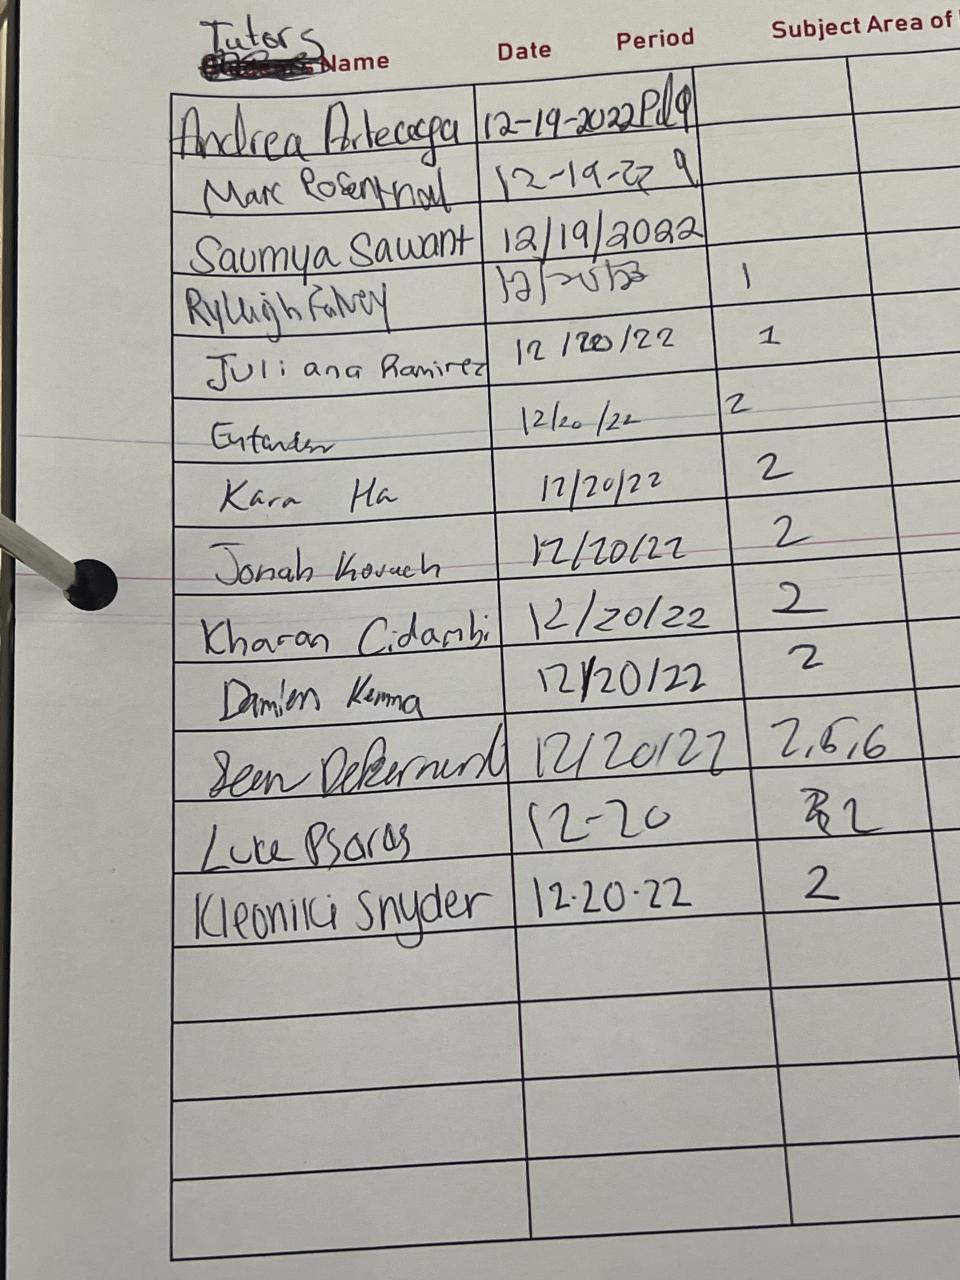 Tutors
Name Date Period Subject Area of
Andrea 12-19-2022 Pd 9
Marc Rosenthal 12-19-22 9
Saumya Sawant 12/19/2022
Ryleigh Falvey 1
Juliana Ramirez 12/20/22 1
12/20/22 2
Kara Ha 12/20/22 2
Jonah Kovach 12/20/22 2
Kharan Cidambi 12/20/22 2
Damien 12/20/22 2
Sean 12/20/22 2,5,6
Luke Psaras 12-20 2
Kleoniki Snyder 12.20.22 2